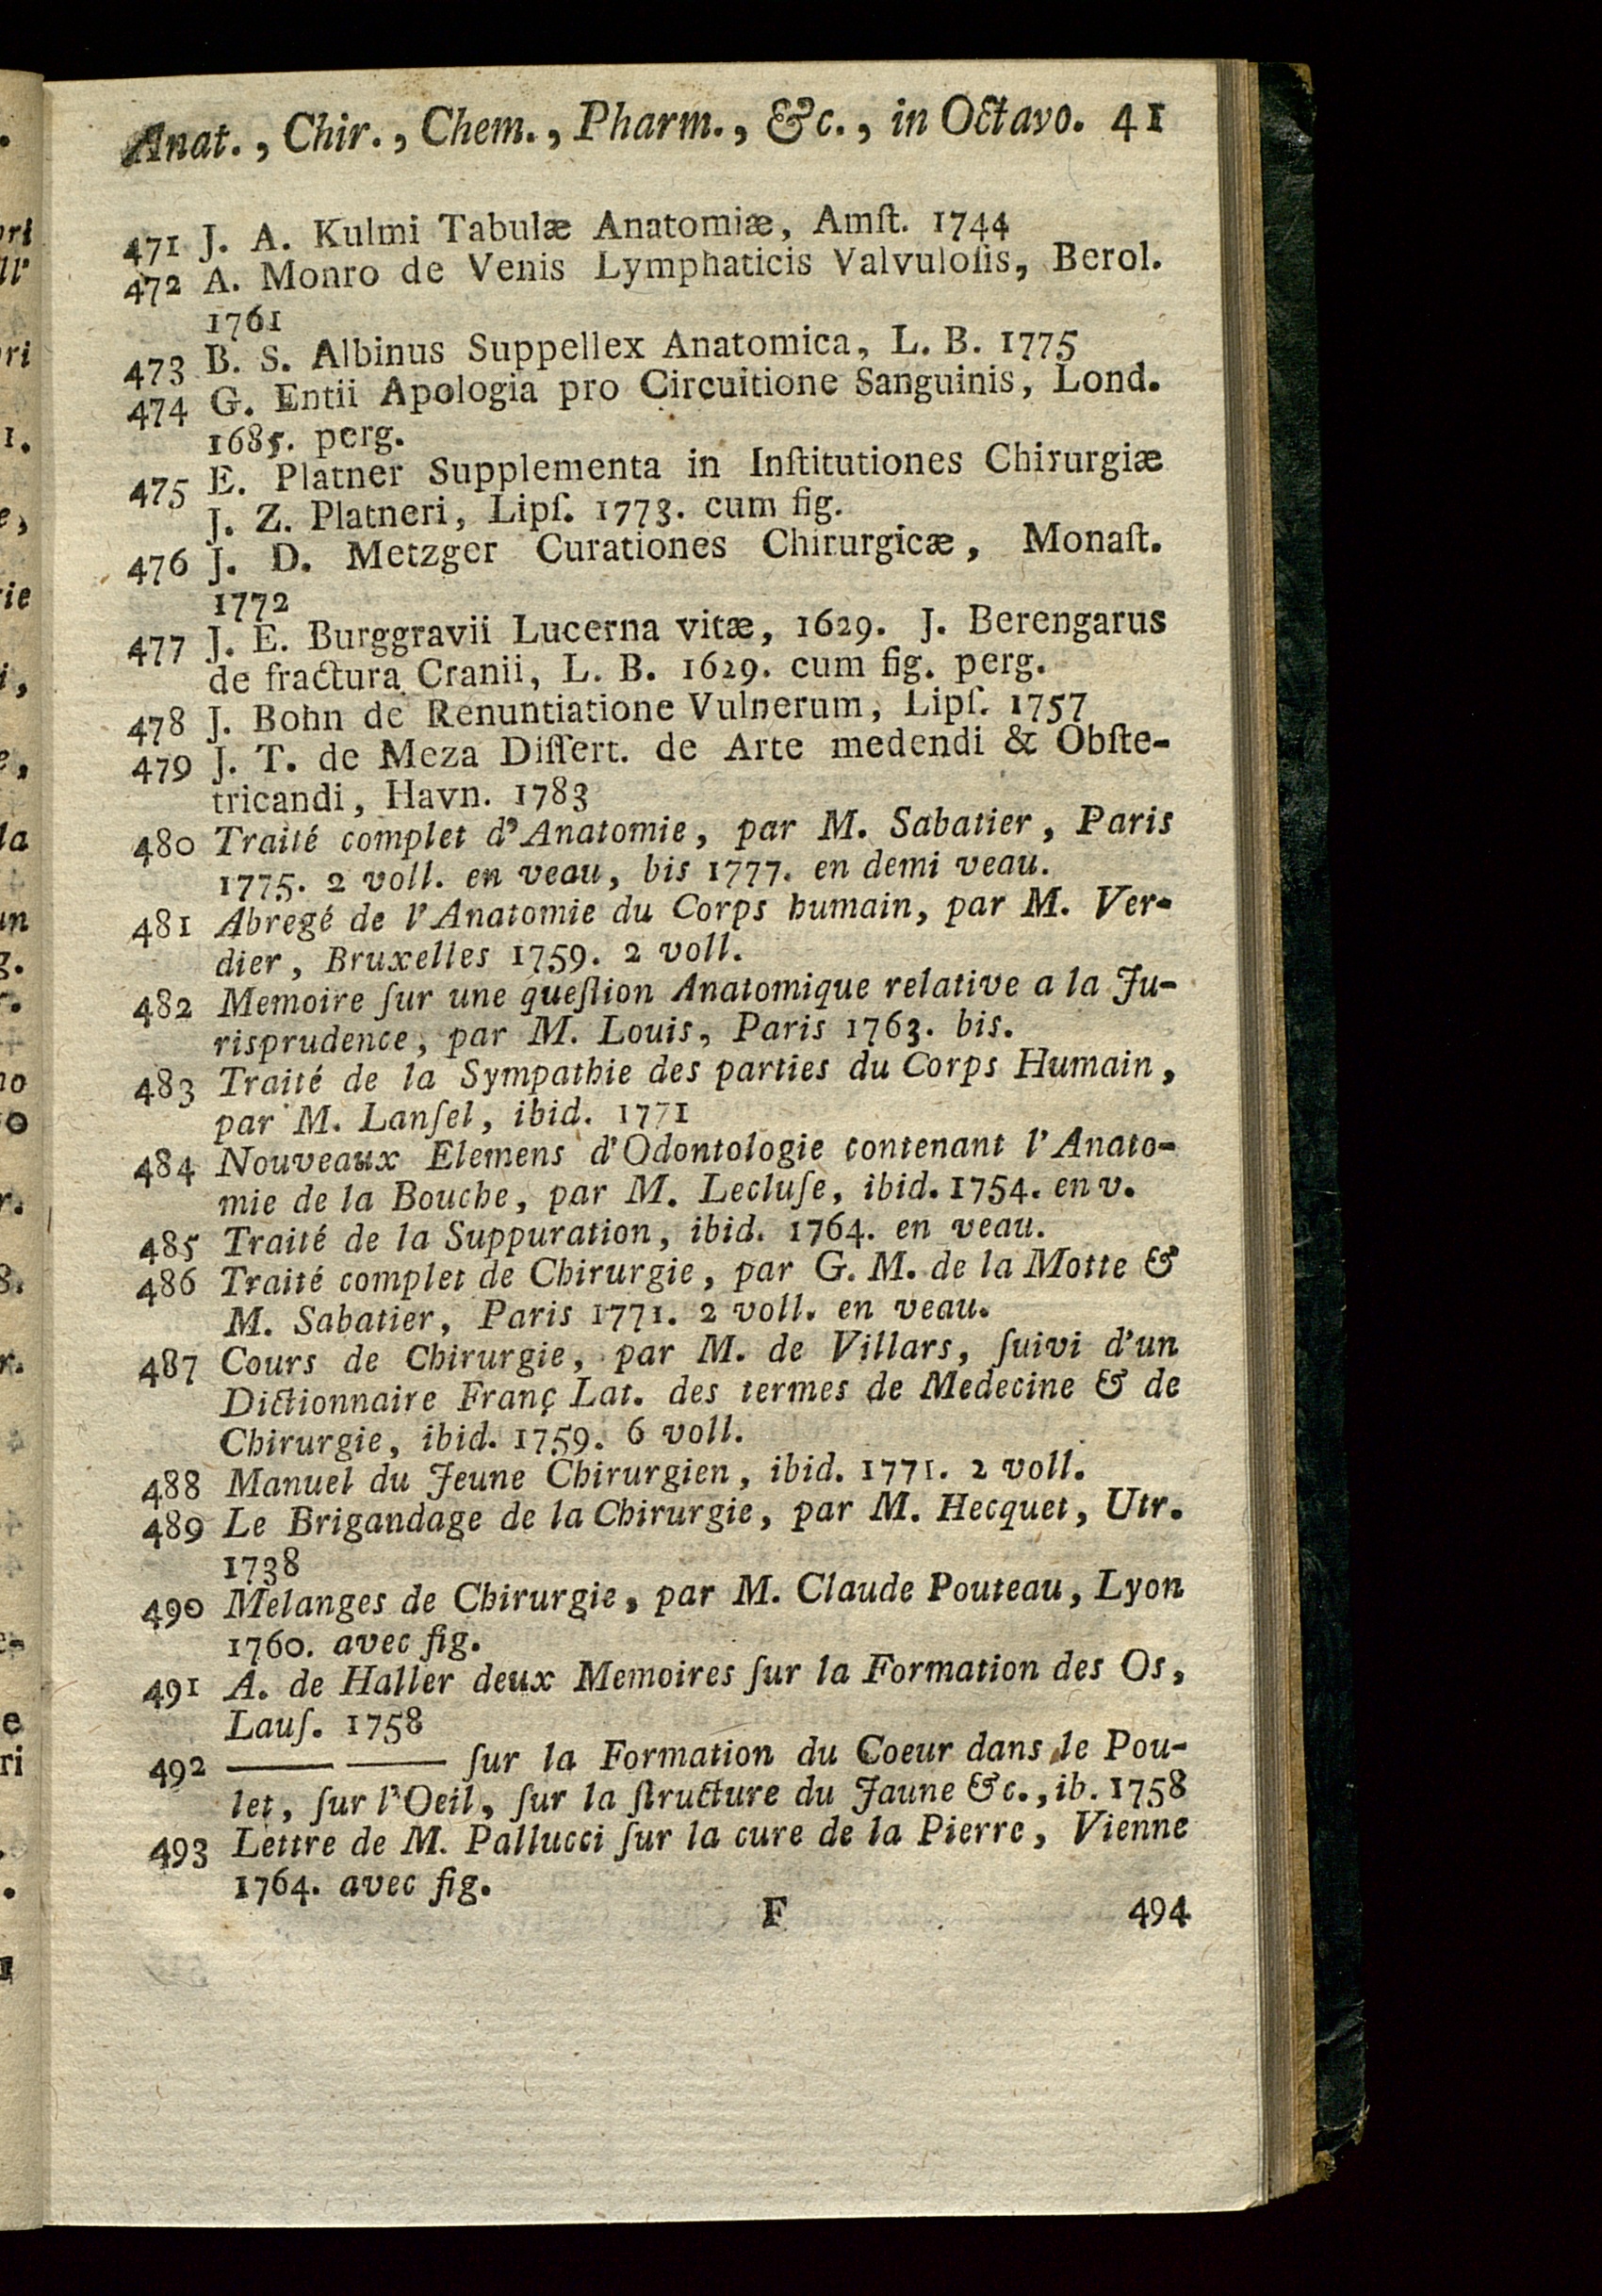 Anat., Chir., Chem., Pharm., &c., in Octavo. 41
471 J. A. Kulmi Tabulæ Anatomiæ, Amſt. 1744
472 A. Monro de Venis Lymphaticis Valvuloſis, Berol.
1761
473 B. S. Albinus Suppellex Anatomica, L. B. 1775
474 G. Entii Apologia pro Circuitione Sanguinis, Lond.
1685. perg.
475 E. Platner Supplementa in Inſtitutiones Chirurgiæ
J. Z. Platneri, Lipſ. 1773. cum fig.
476 J. D. Metzger Curationes Chirurgicæ, Monaſt.
1772
477 J. E. Burggravii Lucerna vitæ, 1629. J. Berengarus
de fractura Cranii, L. B. 1629. cum fig. perg.
478 J. Bohn de Renuntiatione Vulnerum, Lipſ. 1757
479 J. T. de Meza Diſſert. de Arte medendi & Obſte-
tricandi, Havn. 1783
480 Traité complet d'Anatomie, par M. Sabatier, Paris
1775. 2 voll. en veau, bis 1777. en demi veau.
481 Abregé de l'Anatomie du Corps humain, par M. Ver-
dier, Bruxelles 1759. 2 voll.
482 Memoire ſur une queſtion Anatomique relative a la Ju-
risprudence, par M. Louis, Paris 1763. bis.
483 Traité de la Sympathie des parties du Corps Humain,
par M. Lanſel, ibid. 1771
484 Nouveaux Elemens d'Odontologie contenant l'Anato-
mie de la Bouche, par M. Lecluſe, ibid. 1754. en v.
485 Traité de la Suppuration, ibid. 1764. en veau.
486 Traité complet de Chirurgie, par G. M. de la Motte &
M. Sabatier, Paris 1771. 2 voll. en veau.
487 Cours de Chirurgie, par M. de Villars, ſuivi d'un
Dictionnaire Franç Lat. des termes de Medecine & de
Chirurgie, ibid. 1759. 6 voll.
488 Manuel du Jeune Chirurgien, ibid. 1771. 2 voll.
489 Le Brigandage de la Chirurgie, par M. Hecquet, Utr.
1738
490 Melanges de Chirurgie, par M. Claude Pouteau, Lyon
1760. avec fig.
491 A. de Haller deux Memoires ſur la Formation des Os,
Lauſ. 1758
492 —— —— ſur la Formation du Coeur dans le Pou-
let, ſur l'Oeil, ſur la ſtructure du Jaune &c., ib. 1758
493 Lettre de M. Pallucci ſur la cure de la Pierre, Vienne
1764. avec fig.
F 494